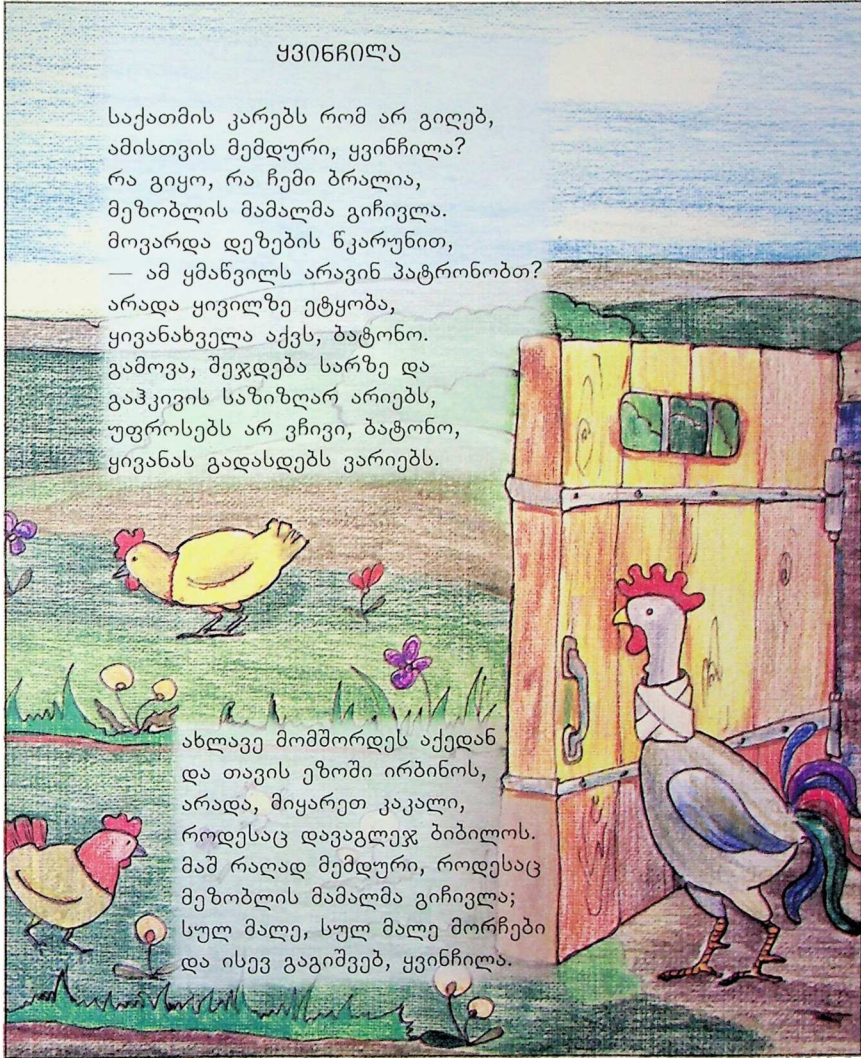 ყვინჩილა
საქათმის კარებს რომ არ გიღებ,
ამისთვის მემდური, ყვინჩილა?
რა გიყო, რა ჩემი ბრალია,
მეზობლის მამალმა გიჩივლა.
მოვარდა დეზების წკარუნით,
— ამ ყმაწვილს არავინ პატრონობთ?
არადა ყივილზე ეტყობა,
ყივანახველა აქვს, ბატონო.
გამოვა, შეჯდება სარზე და
გაჰკივის საზიზღარ არიებს,
უფროსებს არ ვჩივი, ბატონო,
ყივანას გადასდებს ვარიებს.
ახლავე მომშორდეს აქედან
და თავის ეზოში ირბინოს,
არადა, მიყარეთ კაკალი,
როდესაც დავაგლეჯ ბიბილოს.
მაშ რაღად მემდური, როდესაც
მეზობლის მამალმა გიჩივლა;
სულ მალე, სულ მალე მორჩები
და ისევ გაგიშვებ, ყვინჩილა.